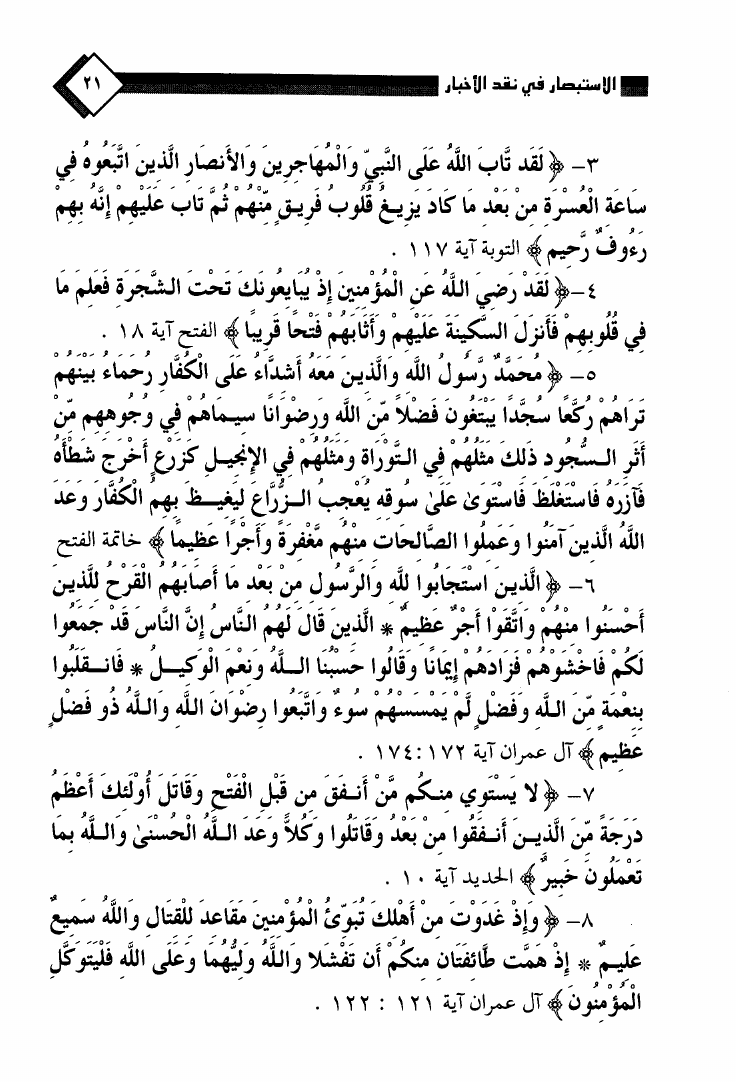 الاستبصار في نقد الأخبار ٢١
٣- ﴿ لَقَد تَّابَ اللَّهُ عَلَى النَّبِيِّ وَالْمُهَاجِرِينَ وَالأَنصَارِ الَّذِينَ اتَّبَعُوهُ فِي
سَاعَةِ الْعُسْرَةِ مِنْ بَعْدِ مَا كَادَ يَزِيغُ قُلُوبُ فَرِيقٍ مِّنْهُمْ ثُمَّ تَابَ عَلَيْهِمْ إِنَّهُ بِهِمْ
رَءُوفٌ رَّحِيم ﴾ التوبة آية ١١٧ .
٤- ﴿ لَقَدْ رَضِيَ اللَّهُ عَنِ الْمُؤْمِنِينَ إِذْ يُبَايِعُونَكَ تَحْتَ الشَّجَرَةِ فَعَلِمَ مَا
فِي قُلُوبِهِمْ فَأَنزَلَ السَّكِينَةَ عَلَيْهِمْ وَأَثَابَهُمْ فَتْحًا قَرِيبًا ﴾ الفتح آية ١٨ .
٥- ﴿ مُحَمَّدٌ رَّسُولُ اللَّهِ وَالَّذِينَ مَعَهُ أَشِدَّاءُ عَلَى الْكُفَّارِ رُحَمَاءُ بَيْنَهُمْ
تَرَاهُمْ رُكَّعًا سُجَّدًا يَبْتَغُونَ فَضْلاً مِّنَ اللَّهِ وَرِضْوَانًا سِيمَاهُمْ فِي وُجُوهِهِم مِّنْ
أَثَرِ السُّجُودِ ذَلِكَ مَثَلُهُمْ فِي التَّوْرَاةِ وَمَثَلُهُمْ فِي الإِنجِيلِ كَزَرْعٍ أَخْرَجَ شَطْأَهُ
فَآزَرَهُ فَاسْتَغْلَظَ فَاسْتَوَىٰ عَلَىٰ سُوقِهِ يُعْجِبُ الزُّرَّاعَ لِيَغِيظَ بِهِمُ الْكُفَّارَ وَعَدَ
اللَّهُ الَّذِينَ آمَنُوا وَعَمِلُوا الصَّالِحَاتِ مِنْهُم مَّغْفِرَةً وَأَجْرًا عَظِيمًا ﴾ خاتمة الفتح
٦- ﴿ الَّذِينَ اسْتَجَابُوا لِلَّهِ وَالرَّسُولِ مِنْ بَعْدِ مَا أَصَابَهُمُ الْقَرْحُ لِلَّذِينَ
أَحْسَنُوا مِنْهُمْ وَاتَّقَوْا أَجْرٌ عَظِيمٌ * الَّذِينَ قَالَ لَهُمُ النَّاسُ إِنَّ النَّاسَ قَدْ جَمَعُوا
لَكُمْ فَاخْشَوْهُمْ فَزَادَهُمْ إِيمَانًا وَقَالُوا حَسْبُنَا اللَّهُ وَنِعْمَ الْوَكِيلُ * فَانقَلَبُوا
بِنِعْمَةٍ مِّنَ اللَّهِ وَفَضْلٍ لَّمْ يَمْسَسْهُمْ سُوءٌ وَاتَّبَعُوا رِضْوَانَ اللَّهِ وَاللَّهُ ذُو فَضْلٍ
عَظِيمٍ ﴾ آل عمران آية ١٧٢:١٧٤ .
٧- ﴿ لا يَسْتَوِي مِنكُم مَّنْ أَنفَقَ مِن قَبْلِ الْفَتْحِ وَقَاتَلَ أُوْلَئِكَ أَعْظَمُ
دَرَجَةً مِّنَ الَّذِينَ أَنفَقُوا مِنْ بَعْدُ وَقَاتَلُوا وَكُلاًّ وَعَدَ اللَّهُ الْحُسْنَىٰ وَاللَّهُ بِمَا
تَعْمَلُونَ خَبِيرٌ ﴾ الحديد آية ١٠ .
٨- ﴿ وَإِذْ غَدَوْتَ مِنْ أَهْلِكَ تُبَوِّئُ الْمُؤْمِنِينَ مَقَاعِدَ لِلْقِتَالِ وَاللَّهُ سَمِيعٌ
عَلِيمٌ * إِذْ هَمَّت طَّائِفَتَانِ مِنكُمْ أَن تَفْشَلا وَاللَّهُ وَلِيُّهُمَا وَعَلَى اللَّهِ فَلْيَتَوَكَّلِ
الْمُؤْمِنُونَ ﴾ آل عمران آية ١٢١ : ١٢٢ .